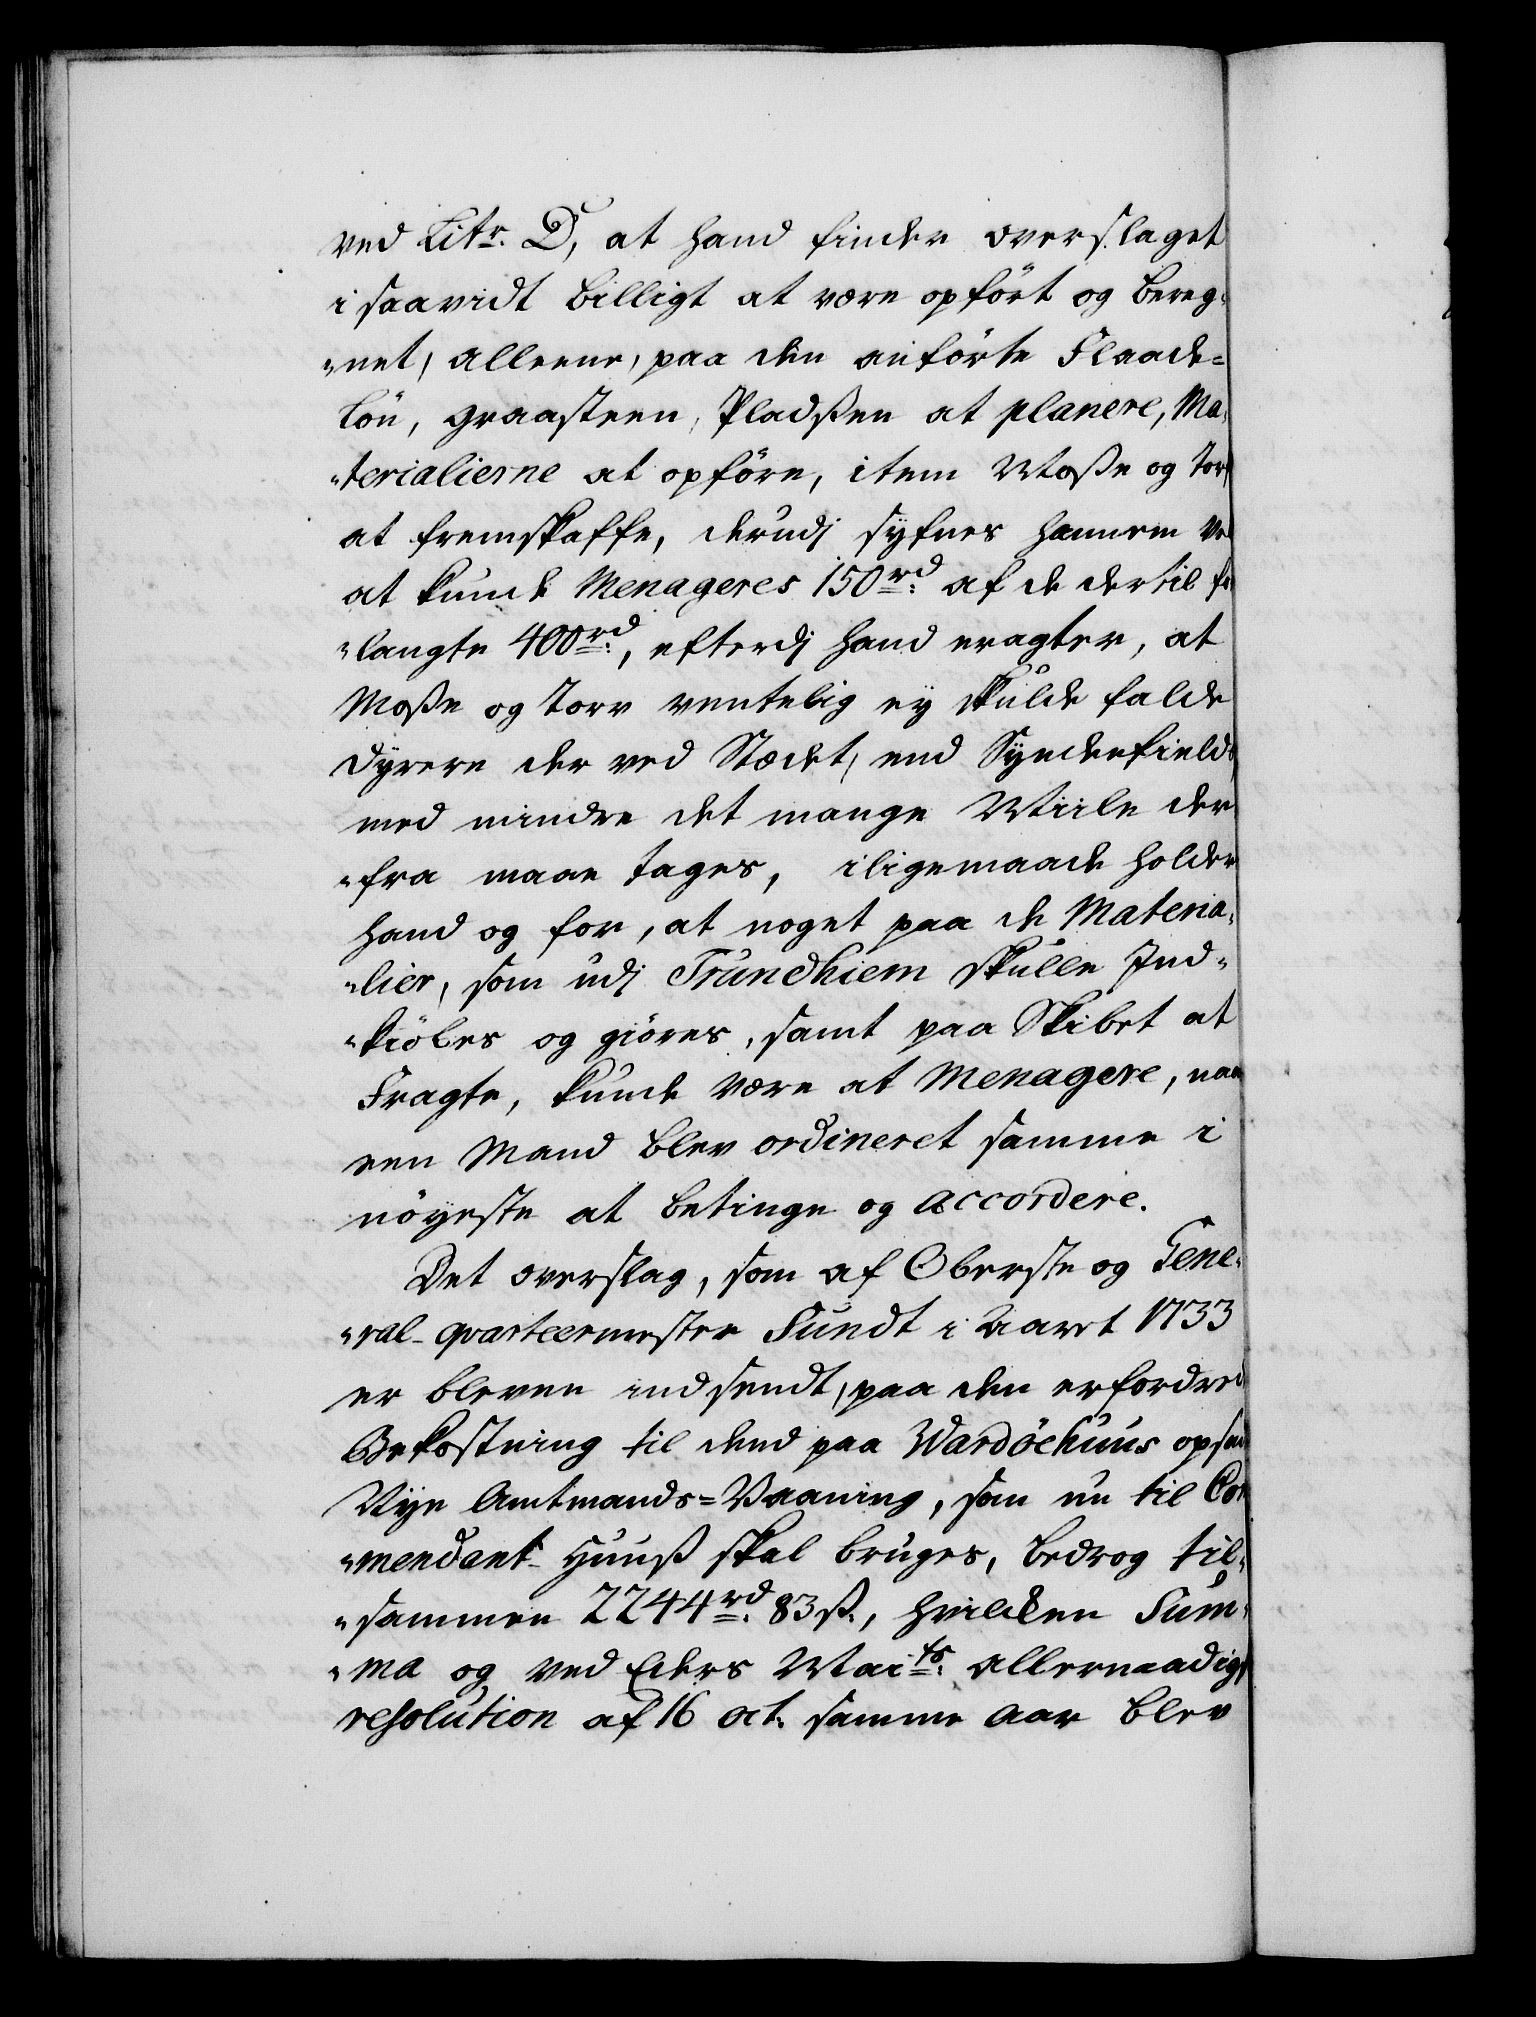 ved Litr. D, at hand finder overslaget
i saavidt billigt at være opført og bereg-
"net, alleene, paa den anførte Flaade-
løn, graasteen, Pladsen at planere, Ma-
"terialierne at opføre, item Moße og Torv
at fremskaffe, derudj synes hannem
at kunde Menageres 150 rd. af de dertil for-
"langte 400 rd., efterdj hand eragter, at
Moße og Torv ventelig ey skulde falde
dyrere der ved Stædet, end Syndenfields
med mindre det mange Miile der
"fra maae tages, iligemaade holder
hand og for, at noget paa de Materia-
"lier, som udj Trundhiem skulle Ind-
"kiøbes og giøres, samt paa Skibet at
Fragte, kunde være at Menagere, naar
een Mand blev ordineret samme i
nøyeste at betinge og accordere.
Det overslag, som af Oberste og Gene-
"ral-quarteermester Fundt i Aaret 1733
er bleven indsendt, paa den erfordrede
Bekostning til dend paa Wardøehuus opsadte
Nye Amtmands-Vaaning, som nu til Com-
"mendant-Huuß skal bruges, bedrog til-
"sammen 2244 rd. 83 ß., hvilken Sum-
"ma og ved Eders Maits. allernaadigst
resolution af 16 oct. samme aar blev